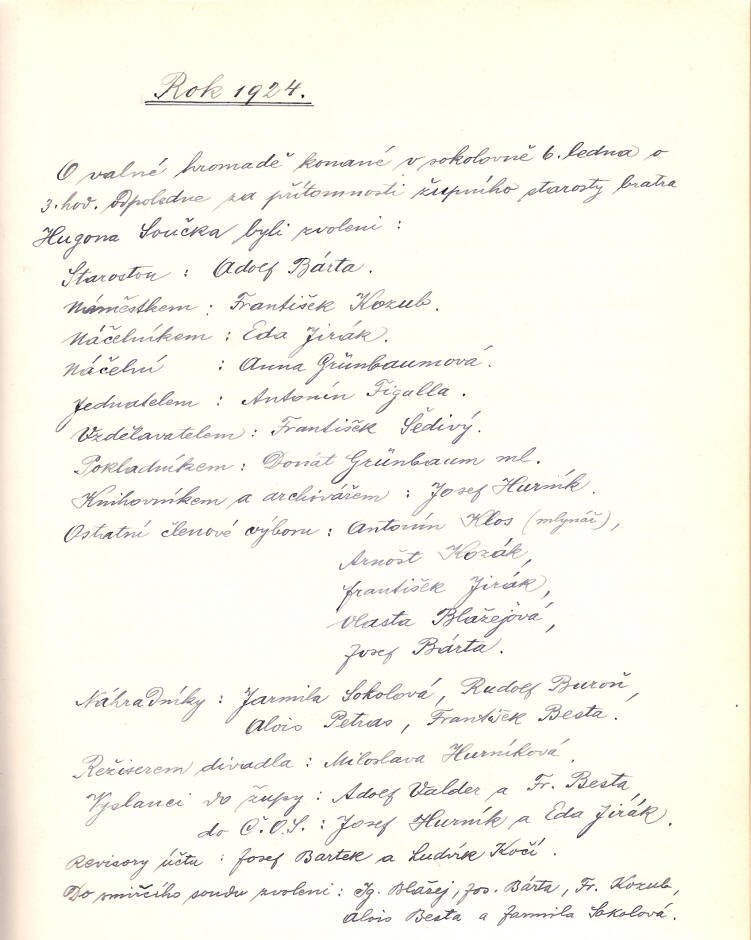 Rok 1924.
O valné hromadě konané v sokolovně 6. ledna o
3. hod. odpoledne za přítomnosti župního starosty bratra
Hugona Součka byli zvoleni :
Starostou : Adolf Bárta.
Náměstkem : František Kozub.
Náčelníkem : Eda Jirák.
Náčelní : Anna Grünbaumová.
Jednatelem : Antonín Figalla.
Vzdělavatelem : František Šedivý.
Pokladníkem : Donát Grünbaum ml.
Knihovníkem a archivářem : Josef Hurník.
Ostatní členové výboru : Antonín Klos (mlynář),
Arnošt Kozák,
František Jirák,
Vlasta Blažejová,
Josef Bárta.
Náhradníky : Jarmila Sokolová, Rudolf Buroň,
Alois Petras, František Besta.
Režiserem divadla : Miloslava Hurníková.
Vyslanci do župy : Adolf Valder a Fr. Besta,
do Č.O.S. : Josef Hurník a Eda Jirák.
Revisory účtu : Josef Bartek a Ludvík Kočí.
Do smírčího soudu zvoleni : Ig. Blažej, Jos. Bárta, Fr. Kozub,
Alois Besta a Jarmila Sokolová.